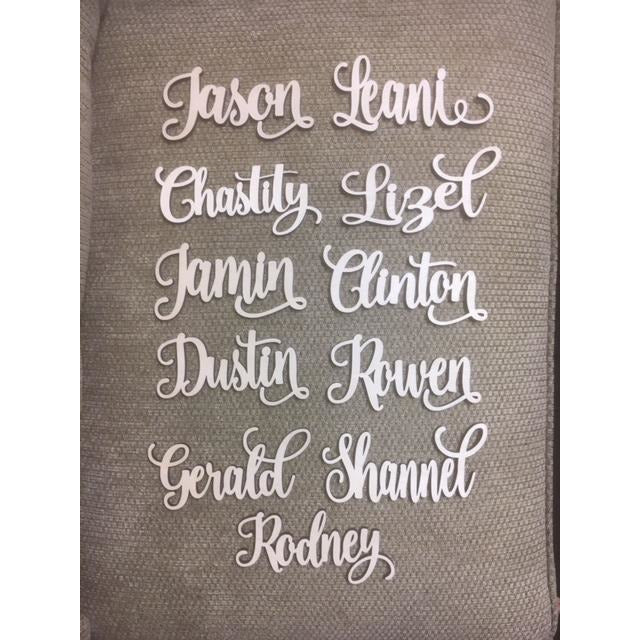 Jason Leani
Chastity Lizel
Jamin Clinton
Dustin Rowen
Gerald Shannel
Rodney